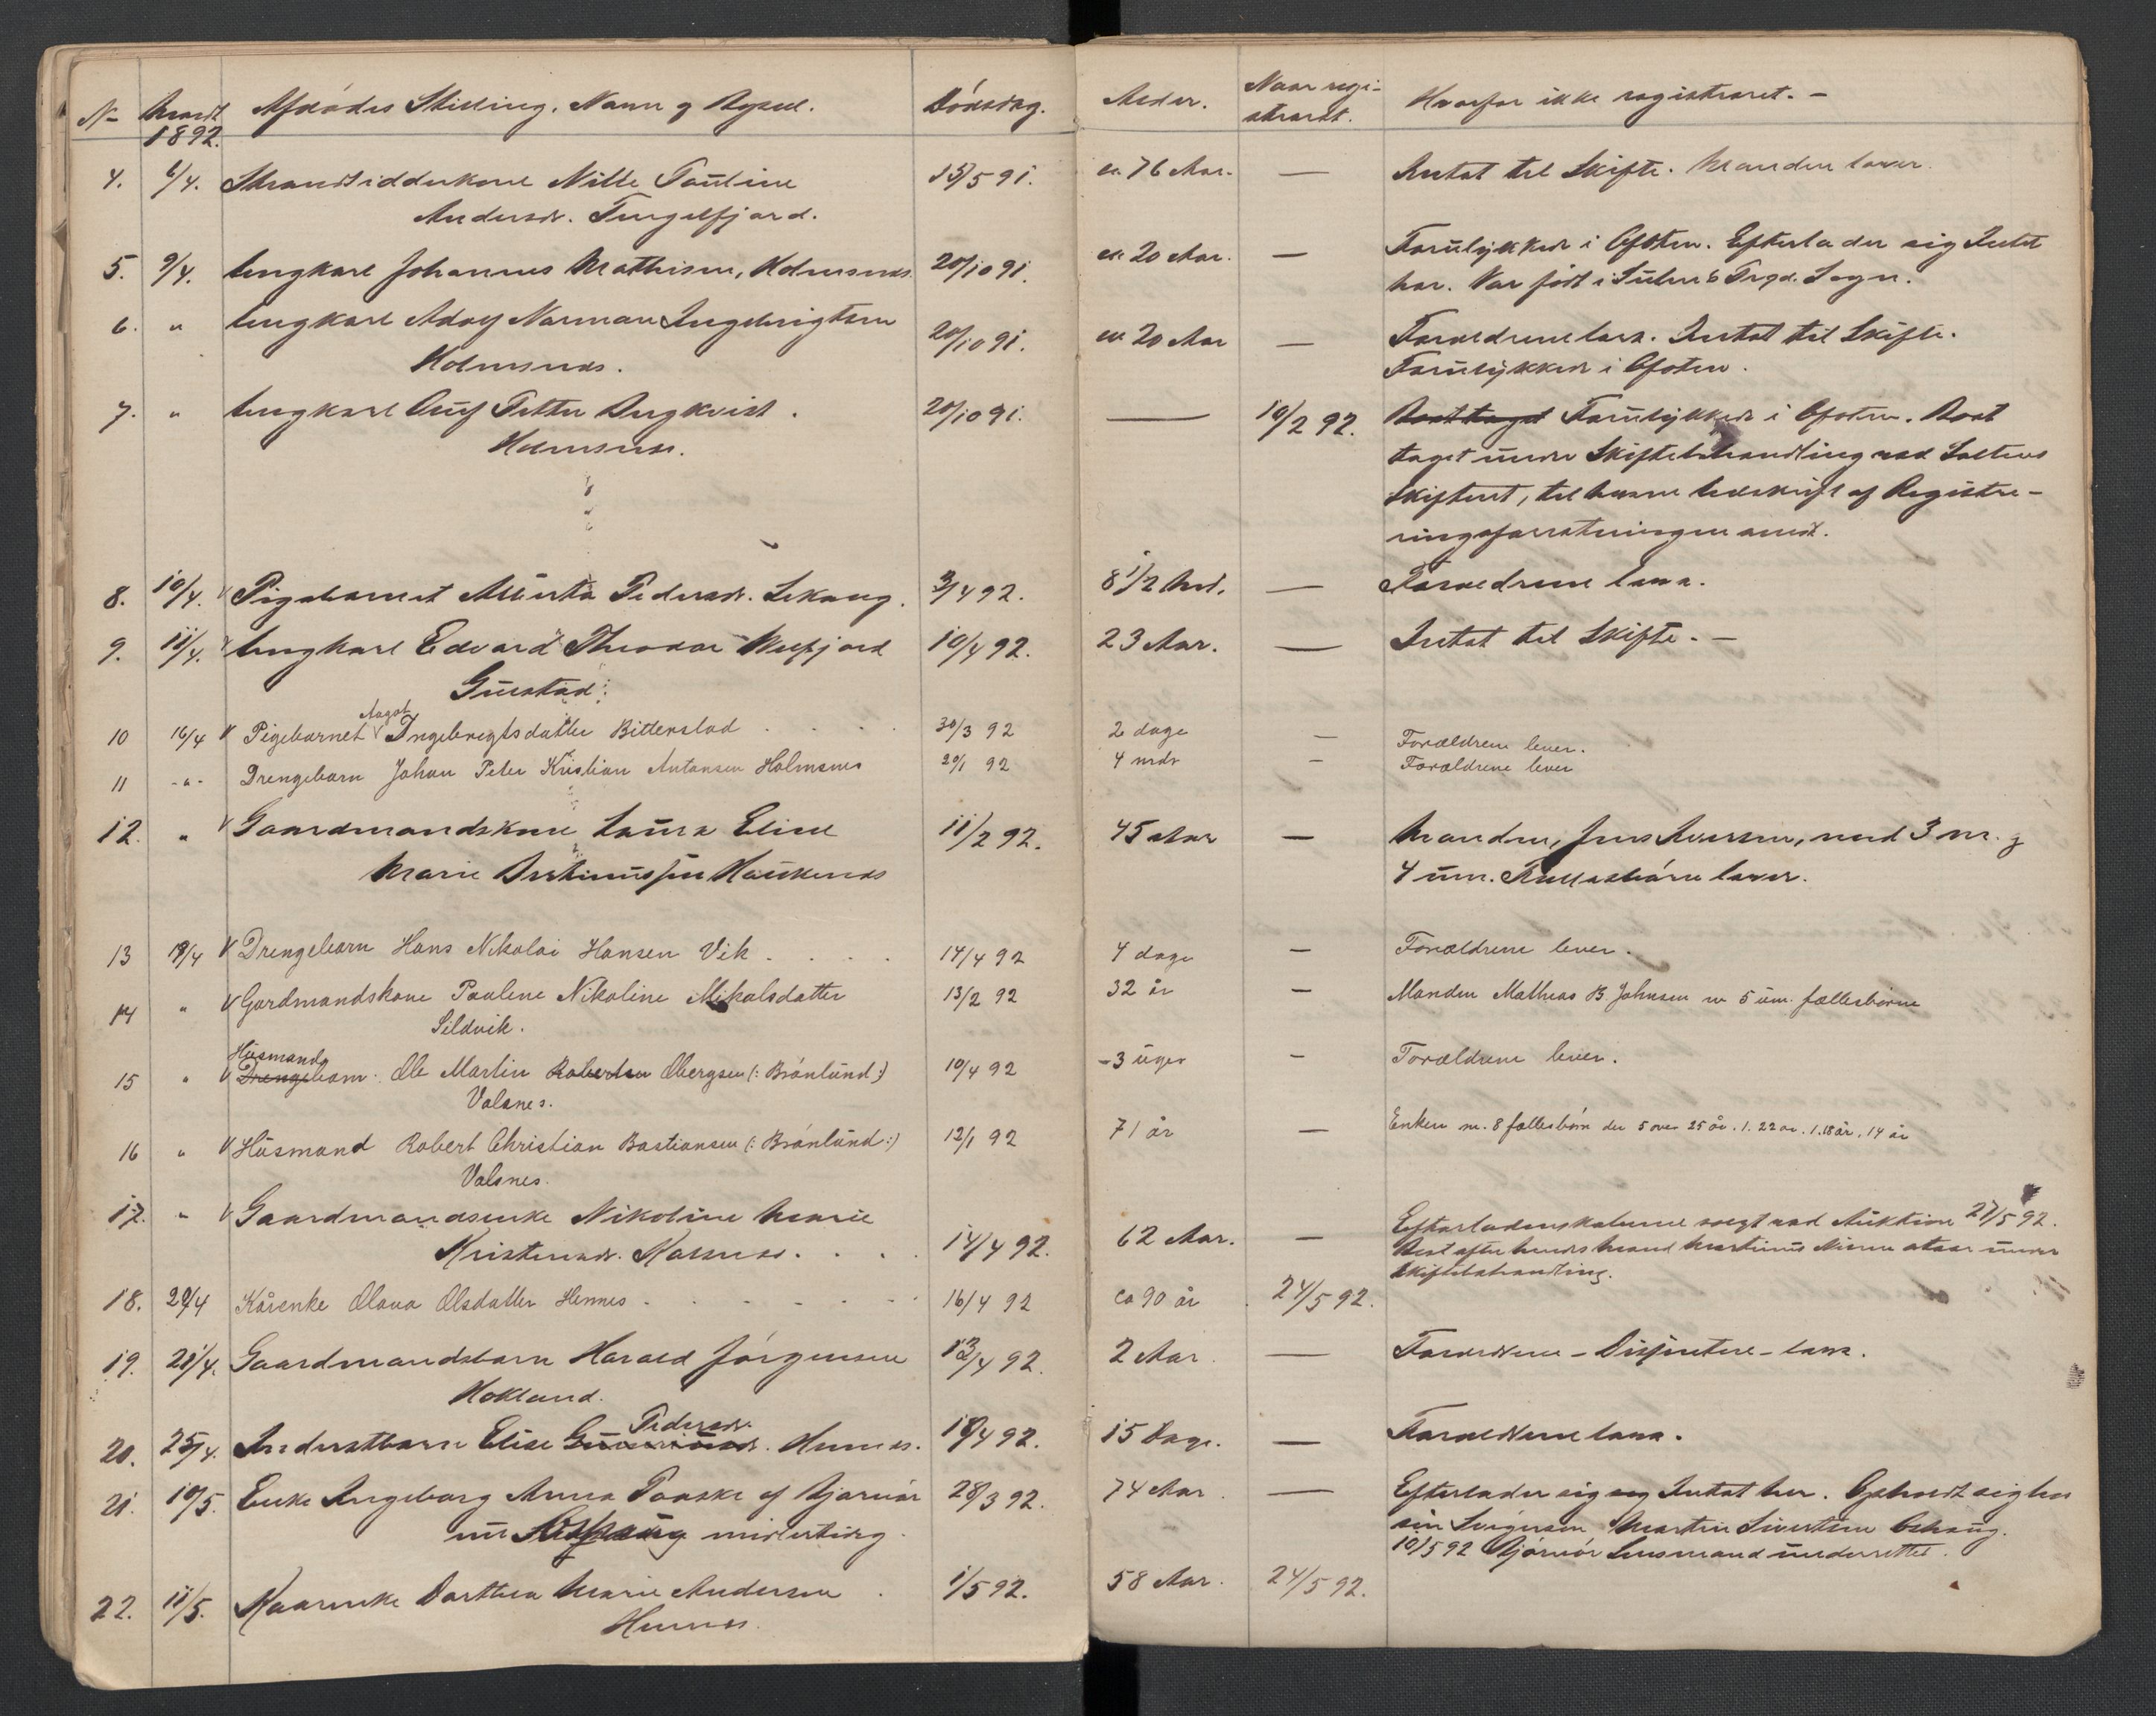 No Anmeldt Afdødes Stilling, Navn og Bopæl. Dødsdag. Alder. Naar regi-
1892. streret. Hvorfor ikke registreret. -
4. 6/4. Strandsidderkone Nille Pauline 15/5 91. ca. 76 Aar. — Intet til Skifte. Manden lever.
Andersdr. Tengelfjord.
5. 9/4. Ungkarl Johannes Mathisen, Holmsnes. 20/10 91. ca 20 Aar. — Forulykket i Ofoten. Efterlader sig Intet
her. Var født i Sogn.
6. " Ungkarl Adolf Norman Ingebrigtsen 20/10 91. ca 20 Aar — Forældrene leve. Intet til Skifte.
Holmsnes. Forulykket i Ofoten.
7. " Ungkarl Oluf Petter Bergkvist. 20/10 91. — 10/2 92. Boet taget Forulykket i Ofoten. Boet
Holmsnes. taget under Skiftebehandling ved Saltens
Skifteret, til hvem Udskrift af Registre-
ringsforretningen send.
8. 10/4. V Pigebarnet Alberta Pedersdr. Sekaug. 3/4 92. 8 1/2 Md. — Forældrene leve.
9. 11/4. V Ungkarl Edvard Theodor Melfjord 10/4 92. 23 Aar. — Intet til Skifte. -
Guustad.
Aagot
10 16/4 V Pigebarnet V Ingebregtsdatter Bitterstad . . . . 30/3 92 2 dage — Forældrene lever.
11 -"- Drengebarn Johan Peter Kristian Antonsen Holmsnes 20/1 92 4 mdr — Forældrene lever
12. " V Gaardmandskone Laura Elise 11/2 92. 45 Aar — Manden, Jens Iversen, med 3 m. og
Marie Haukenes 4 um. Fællesbørn lever.
13 19/4 V Drengebarn Hans Nikolai Hansen Vik . . . . 14/4 92 4 dage — Forældrene lever.
14 " V Gardmandskone Paulene Nikoline Mikalsdatter 13/2 92 32 år — Manden Mathias B. Johnsen m 5 um. fællesbørn
Sildvik.
Husmands
15 " V Drengebarn. Ole Martin Robertsen Obergsen (: Brønlund :) 10/4 92 -3 uger — Forældrene lever.
Valsnes.
16 " V Husmand Robert Christian Bastiansen (: Brønlund :) 12/1 92 71 år — Enken m. 8 fællesbørn der 5 over 25 år. 1. 22 år. 1. 18 år. 14 år
Valsnes.
17. " V Gaardmandsenke Nikoline Marie 14/4 92. 62 Aar. — Efterladenskaberne solgt ved Auktion 27/5 92.
Kristensdr. Kalsnes. . . . Boet efter hendes Mand Martinus Nisen staar under
Skiftebehandling.
18. 20/4 Kårenke Olava Olsdatter Hennes . . . . . . 16/4 92 ca 90 år. 24/5 92.
19. 21/4. Gaardmandsbarn Harald Jørgensen 13/4 92. 2 Aar. — Forældrene - Disponitene - leve.
Hokland.
Pedersdr.
20. 25/4. Inderstbarn Elise Hennes. 10/4 92. 15 Dage. — Forældrene leve.
21. 10/5. Enke Ingeborg Anna Paaske af Bjarnør 28/3 92. 74 Aar. — Efterlader sig Intet her. Opholdt sig hos
midlertidig. sin Svigersøn Martin Sivertsen Oshaug.
10/5 92 Bjørnør Lensmand underrettet.
22. 11/5. Kaarenke Dorthea Marie Andersen . 1/5 92. 58 Aar. 24/5 92.
Hennes.